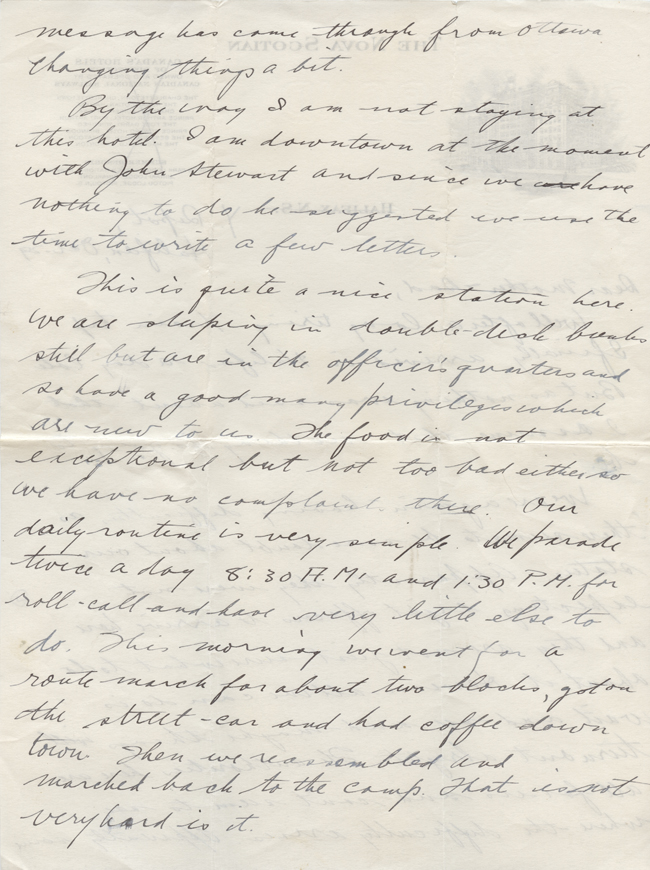 message has come through from Ottawa
changing things a bit.
By the way I am not staying at
this hotel. I am downtown at the moment
with John Stewart and since we have
nothing to do he suggested we use the
time to write a few letters.
This is quite a nice station here.
We are sleeping in double-desk bunks
still but are in the officer's quarters and
so have a good many privileges which
are new to us. The food is not
exceptional but not too bad either so
we have no complaints there. Our
daily routine is very simple. We parade
twice a day 8:30 A.M. and 1:30 P.M. for
roll-call and have very little else to
do. This morning we went for a
route march for about two blocks, got on
the street-car and had coffee down
town. Then we reassembled and
marched back to the camp. That is not
very hard is it.